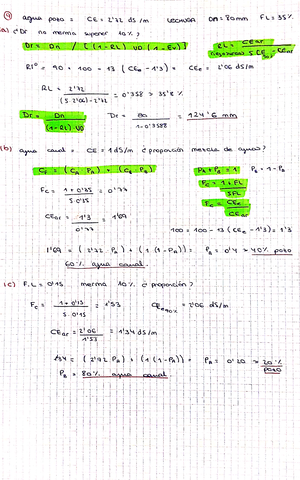 ④ agua pozo = CE = 2'32 dS/m LECHUGA Dn = 80mm FL = 35%
(a) ¿Dr no merma superar 10%?
Dr = Dn / [(1-RL) UO (1-Ev)]
RL = CEar / 5 CEe - CEar
RTº = 90 = 100 - 13 (CEe - 1'3) = CEe = 2'06 dS/m
RL = 2'32 / (5·2'06) - 2'32 = 0'358 > 35'8%
Dr = Dn / (1-RL) UO
Dr = 80 / 1-0'3588 = 124'6 mm
(b) agua canal = CE = 1 dS/m ¿proporción mezcla de aguas?
Cf = (CA PA) + (CB PB)
PA + PB = 1 PB = 1 - PA
Fc = 1+FL / 5FL
Fc = CEe / CEar
Fc = 1+0'35 / 5·0'35 = 0'77
CEar = 1'3 / 0'77 = 1'69
100 = 100 - 13 (CEe - 1'3) = 1'3
1'69 = (2'32 PA) + (1 (1-PA)) = PA = 0'4 > 40% pozo
60% agua canal
(c) F.L = 0'15 merma 10% ¿proporción?
Fc = 1+0'15 / 5·0'15 = 1'53
CEe90% = 2'06 dS/m
CEar = 2'06 / 1'53 = 1'34 dS/m
1'34 = (2'32 PA) + (1 (1-PA)) = PA = 0'20 > 20% pozo
PB = 80% agua canal